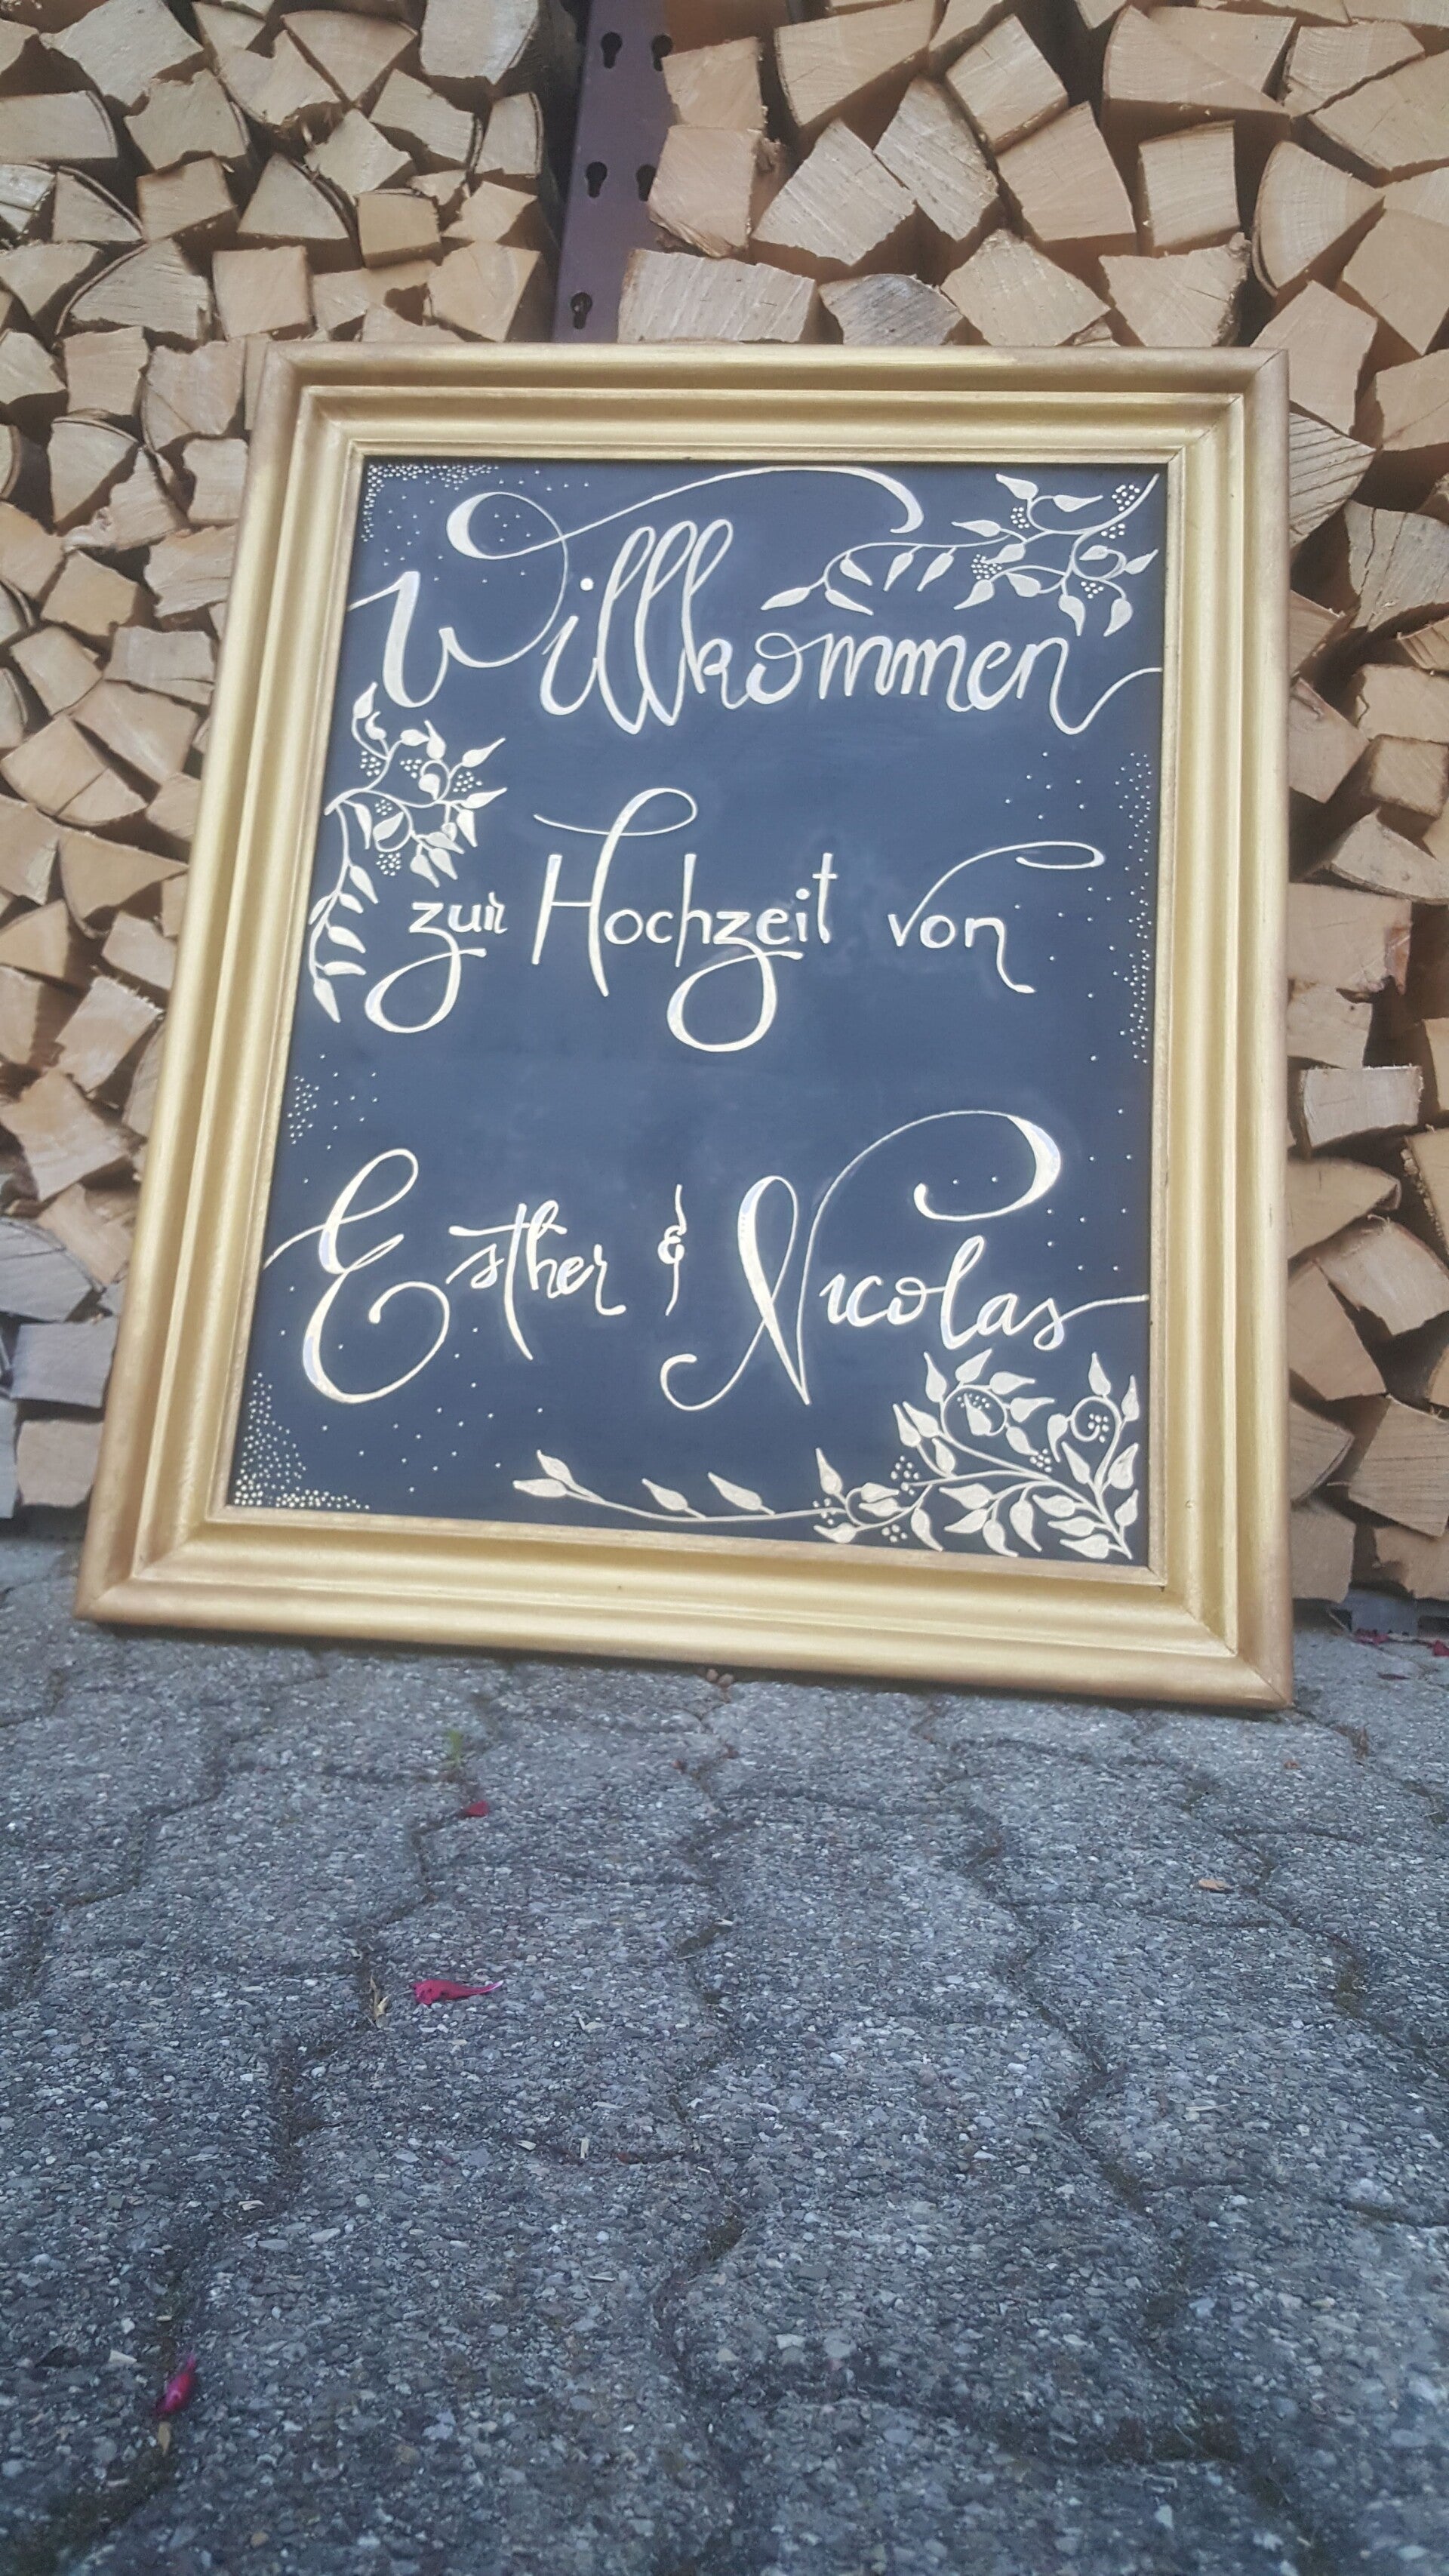 Willkommen
zur Hochzeit von
Esther & Nicolas